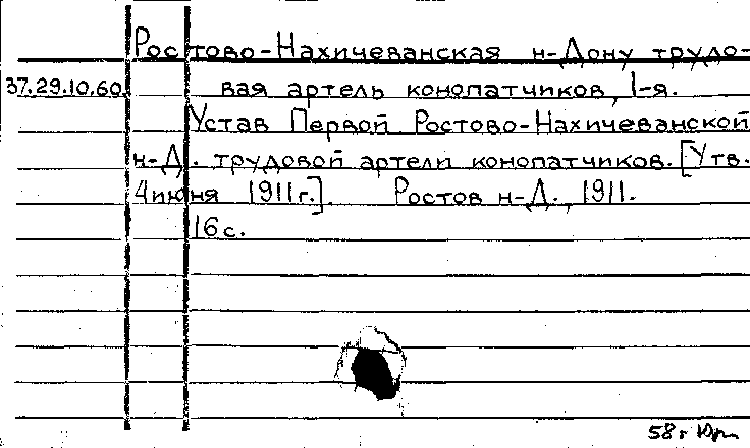 Ростово-Нахичеванская н-Дону трудо-
37.29.10.60. вая артель конопатчиков, 1-я.
Устав Первой Ростово-Нахичеванской
н-Д. трудовой артели конопатчиков. [Утв.
4 июня 1911 г.]. Ростов н-Д., 1911.
16 с.
58 г Юр.